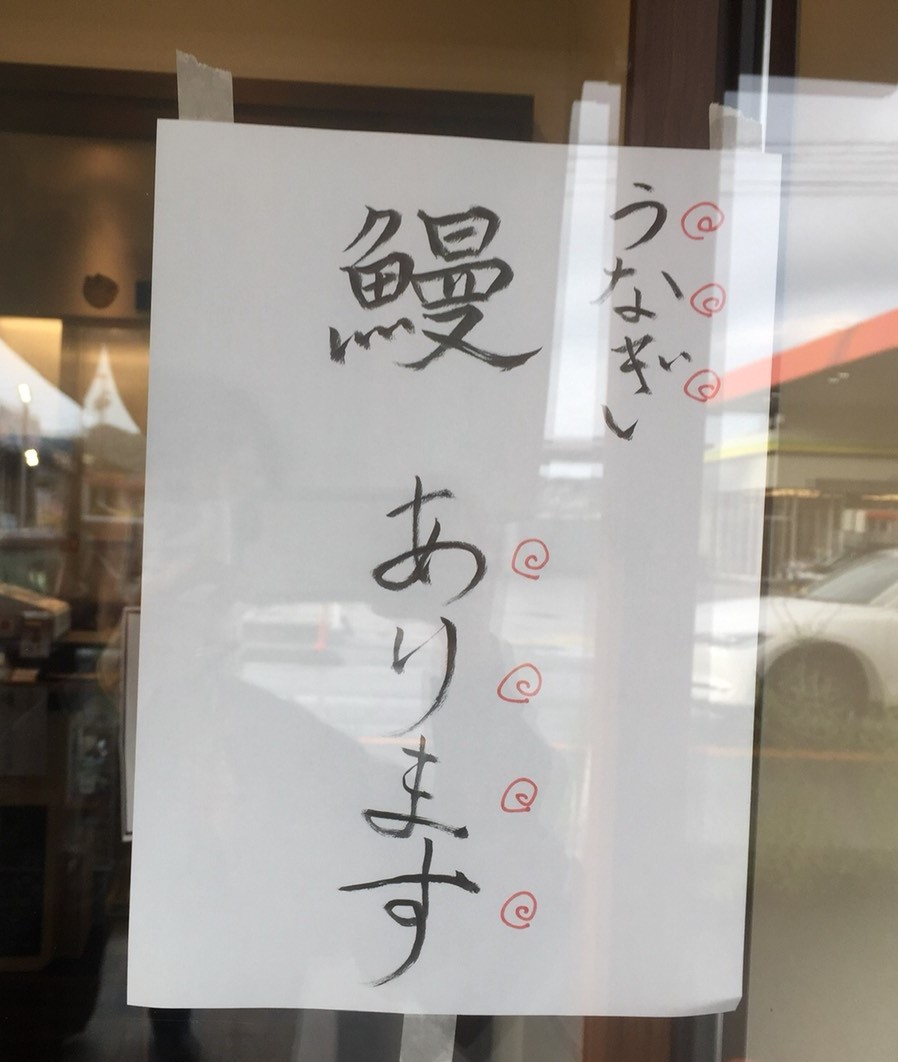 うなぎ
鰻 あります